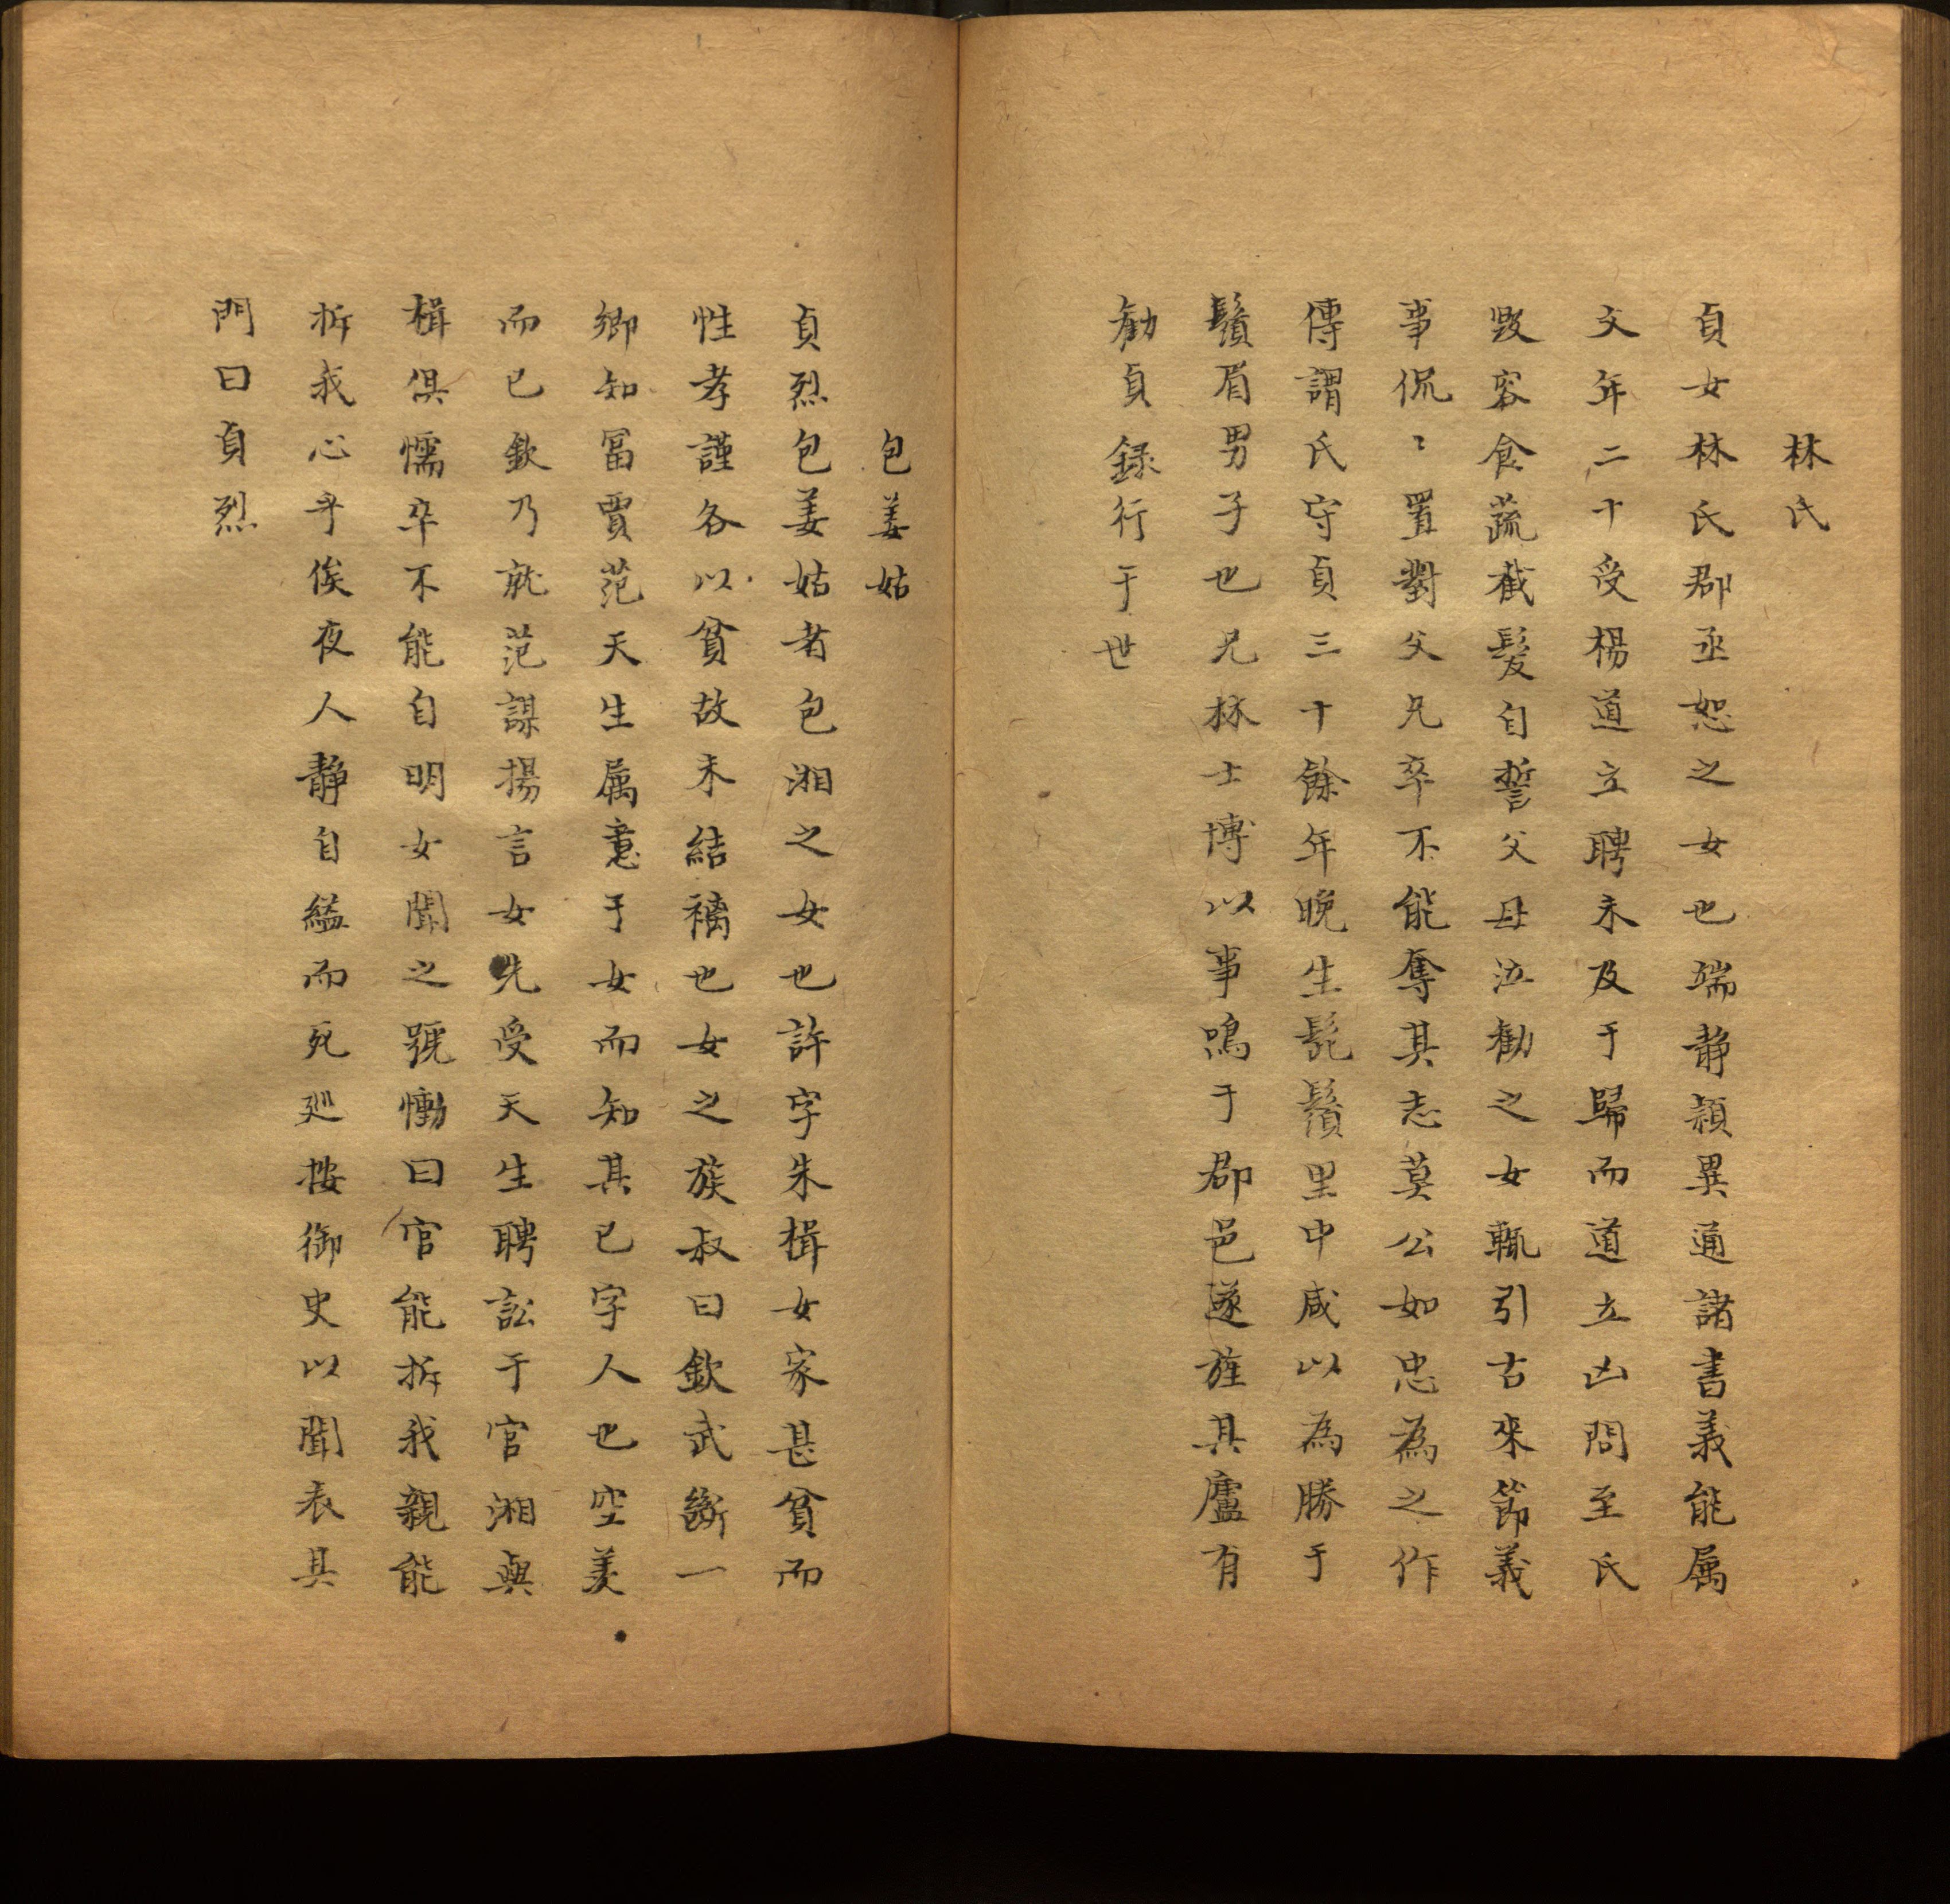 林氏
貞女林氏郡丞恕之女也端静穎異通諸書義能属
文年二十受楊道立聘未及于歸而道立凶問至氏
毁容食蔬截髮自誓父母泣勸之女輒引古來節義
事侃〻置對父兄卒不能奪其志莫公如忠為之作
傳謂氏守貞三十餘年晚生髭鬚里中咸以為勝于
鬚眉男子也兄林士博以事鳴于郡邑遂旌其廬有
勸貞録行于世
包姜姑
貞烈包姜姑者包湘之女也許字朱楫女家甚貧而
性孝謹各以貧故未結褵也女之族叔曰欽武斷一
鄉知冨賈范天生属意于女而知其已字人也空羡
而已欽乃就范謀揚言女先受天生聘訟于官湘與
楫俱懦卒不能自明女聞之號慟曰官能拆我親能
拆我心乎俟夜人静自縊而死廵按御史以聞表其
門曰貞烈